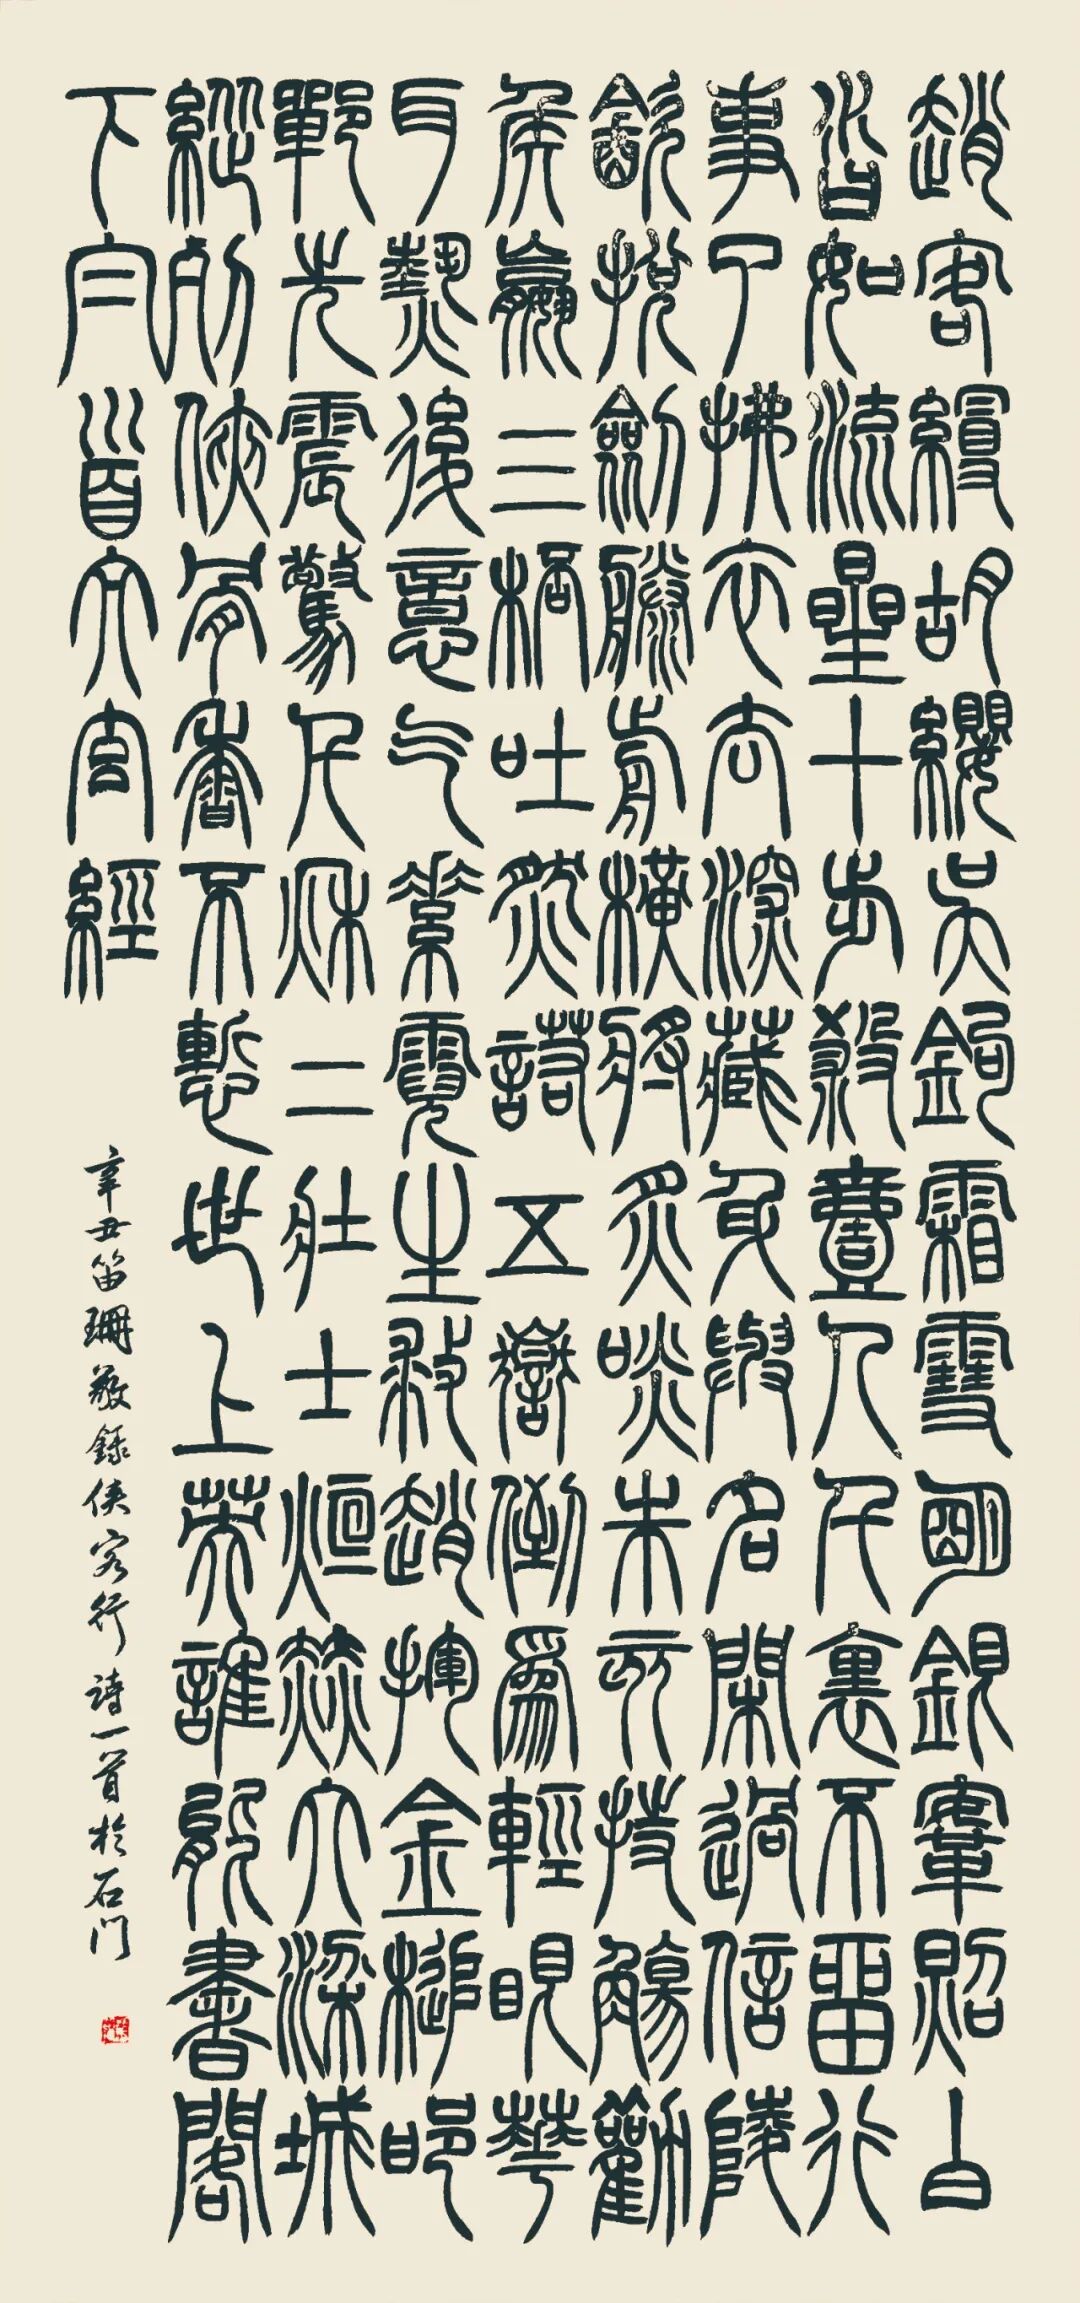 趙客縵胡纓吳鉤霜雪明銀鞍照白
沓如流星十步殺壹人千裏不留行
事了拂衣去深藏身與名閑過信陵
飲脫劍膝前橫將炙啖朱亥持觴勸
侯嬴三杯吐然諾五嶽倒為輕眼花
耳熱後意氣素霓生救趙揮金槌邯
鄲先震驚千秋二壯士烜赫大梁城
縱死俠骨香不慚世上英誰能書閣
下白首太玄經
辛丑笛珊敬錄俠客行詩一首於石門